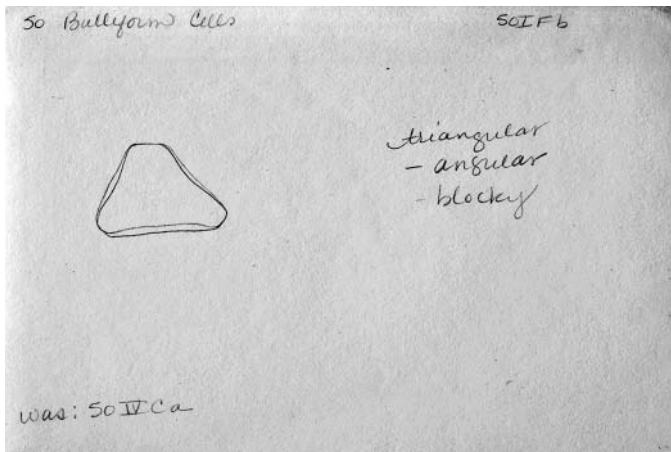 50 Bulliform Cells
50IFb
triangular
- angular
- blocky
was: 50 IV Ca